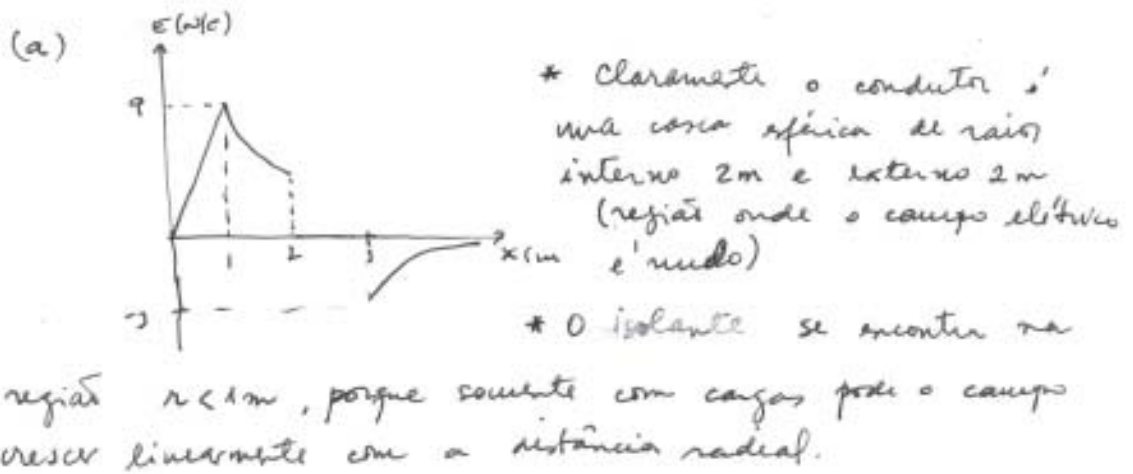 (a)
E (N/C)
9
1 2 3 x (m
-3
* Claramente o condutor é
uma casca esférica de raior
interno 2m e externo 2m
(região onde o campo elétrico
é nudo)
* O isolante se encontra na
região r < 1m, porque somente com cargas pode o campo
crescer linearmente com a distância radial.